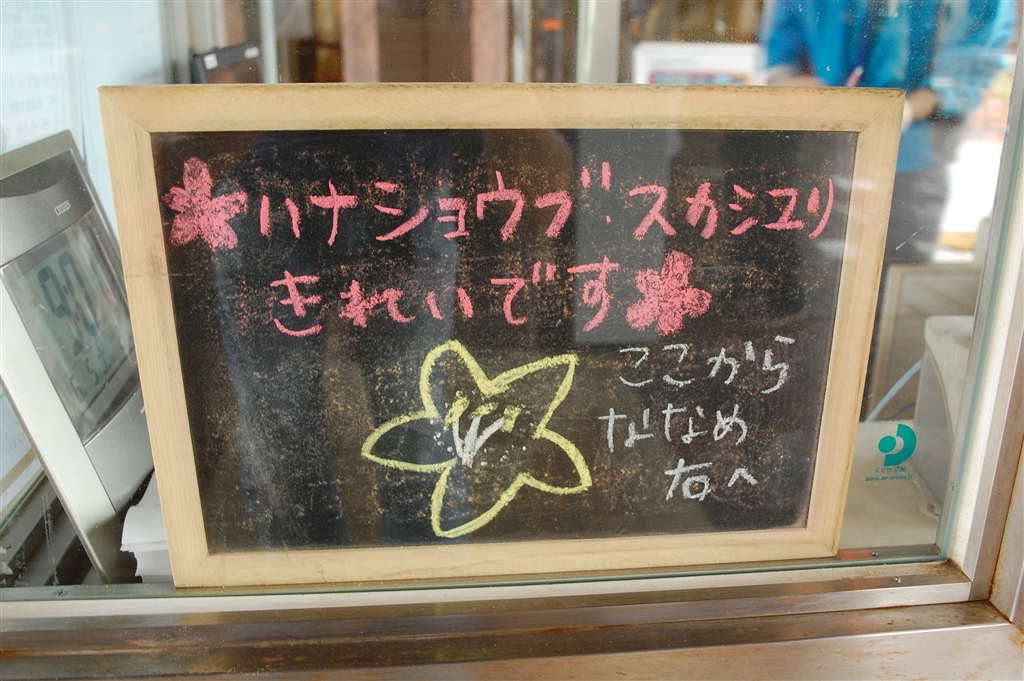 ハナショウブ スカシユリ
きれいです
ここから
ななめ
右へ